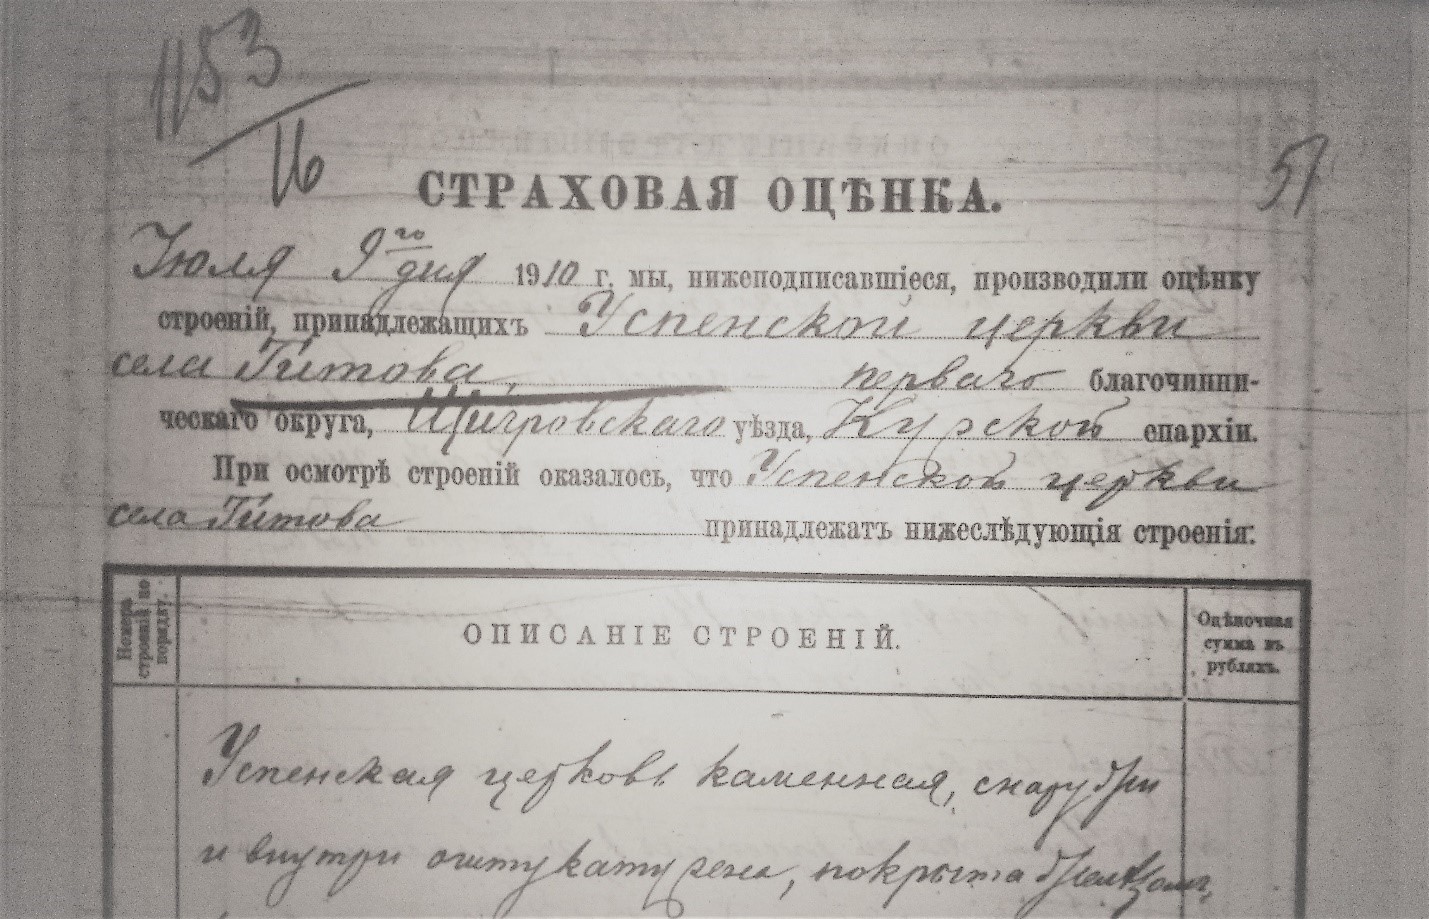 1153
16
57
СТРАХОВАЯ ОЦѢНКА.
Іюля 9го дня 1910 г. мы, нижеподписавшіеся, производили оцѣнку
строеній, принадлежащихъ Успенской церкви
села Титова, перваго благочинни-
ческаго округа, Щигровскаго уѣзда, Курской епархіи.
При осмотрѣ строеній оказалось, что Успенской церкви
села Титова принадлежатъ нижеслѣдующія строенія:
Номера строеній по порядку.
ОПИСАНІЕ СТРОЕНІЙ.
Оцѣночная
сумма въ
рубляхъ.
Успенская церковь каменная, снаружи
и внутри оштукатурена, покрыта желѣзомъ,